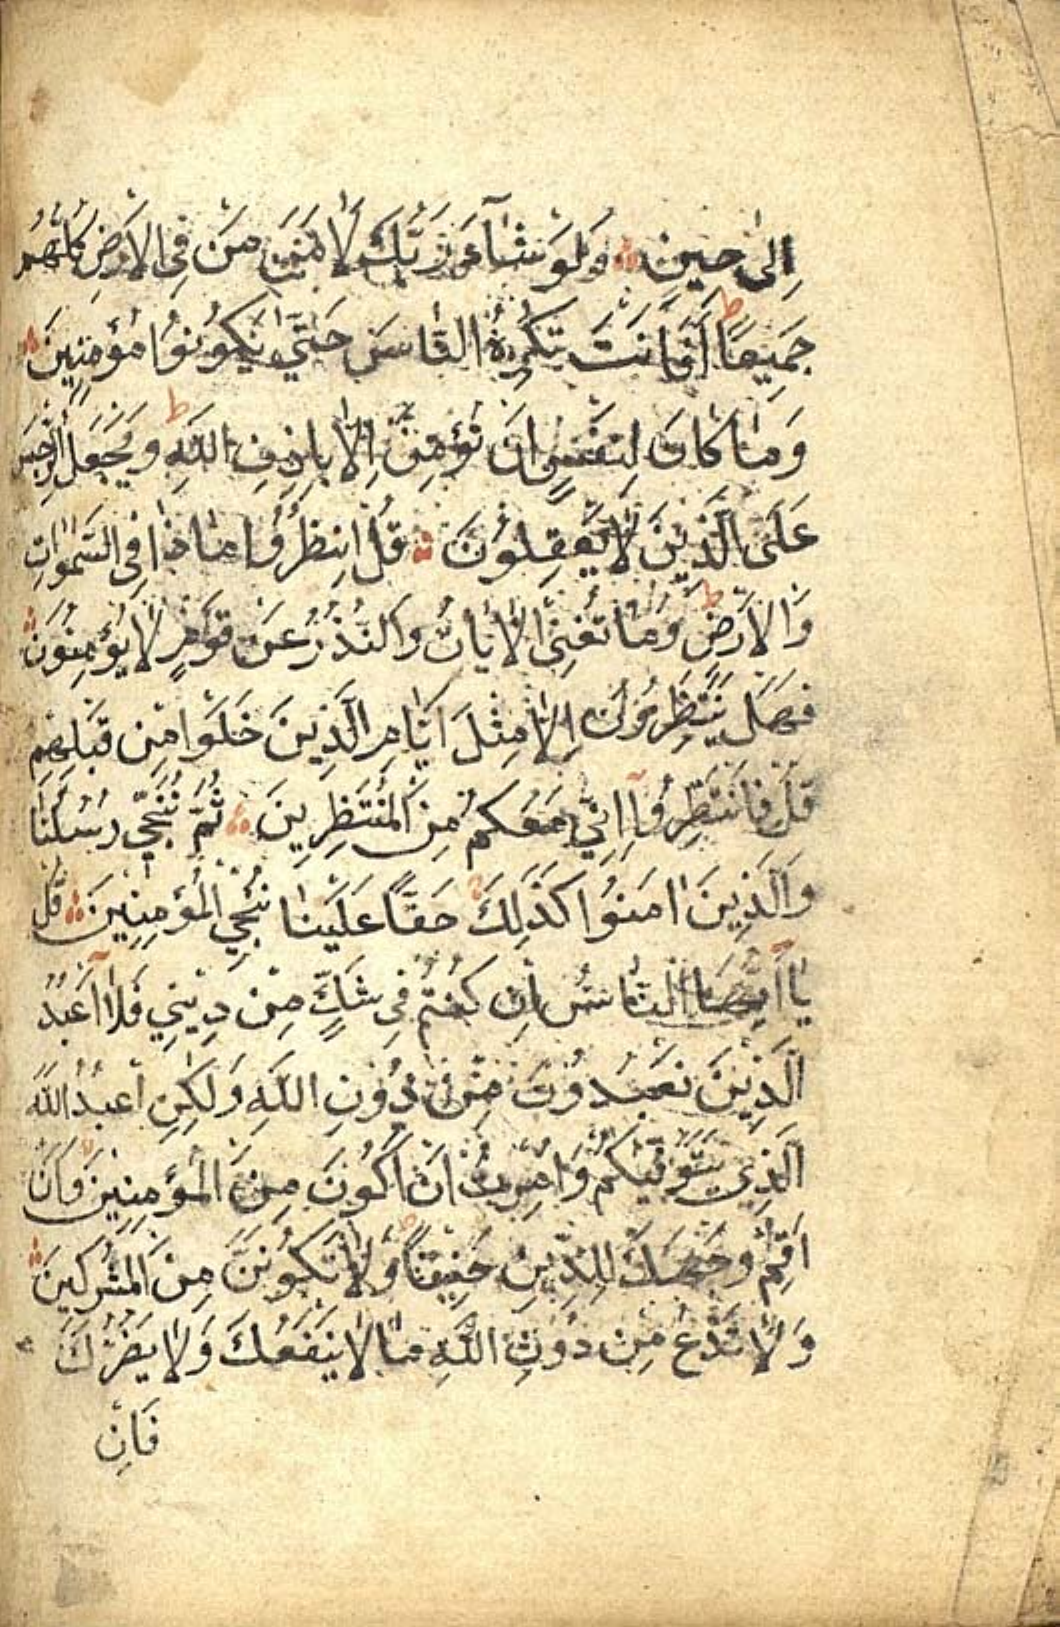 اِلٰى حِينٍ وَلَوْ شَآءَ رَبُّكَ لَاٰمَنَ مَنْ فِى الْاَرْضِ كُلُّهُمْ
جَمِيعًا ط اَفَاَنْتَ تُكْرِهُ النَّاسَ حَتّٰى يَكُونُوا مُؤْمِنِينَ
وَمَا كَانَ لِنَفْسٍ اَنْ تُؤْمِنَ اِلَّا بِاِذْنِ اللّٰهِ ط وَيَجْعَلُ الرِّجْسَ
عَلَى الَّذِينَ لَا يَعْقِلُونَ قُلِ انْظُرُوا مَاذَا فِى السَّمٰوَاتِ
وَالْاَرْضِ ط وَمَا تُغْنِى الْاٰيَاتُ وَالنُّذُرُ عَنْ قَوْمٍ لَا يُؤْمِنُونَ
فَهَلْ يَنْتَظِرُونَ اِلَّا مِثْلَ اَيَّامِ الَّذِينَ خَلَوْا مِنْ قَبْلِهِمْ
قُلْ فَانْتَظِرُوا اِنِّى مَعَكُمْ مِنَ الْمُنْتَظِرِينَ ثُمَّ نُنَجِّى رُسُلَنَا
وَالَّذِينَ اٰمَنُوا كَذٰلِكَ حَقًّا عَلَيْنَا نُنْجِ الْمُؤْمِنِينَ قُلْ
يَا اَيُّهَا النَّاسُ اِنْ كُنْتُمْ فِى شَكٍّ مِنْ دِينِى فَلَا اَعْبُدُ
الَّذِينَ تَعْبُدُونَ مِنْ دُونِ اللّٰهِ وَلٰكِنْ اَعْبُدُ اللّٰهَ
الَّذِى يَتَوَفّٰيكُمْ وَاُمِرْتُ اَنْ اَكُونَ مِنَ الْمُؤْمِنِينَ وَاَنْ
اَقِمْ وَجْهَكَ لِلدِّينِ حَنِيفًا وَلَا تَكُونَنَّ مِنَ الْمُشْرِكِينَ
وَلَا تَدْعُ مِنْ دُونِ اللّٰهِ مَا لَا يَنْفَعُكَ وَلَا يَضُرُّكَ
فَاِنْ